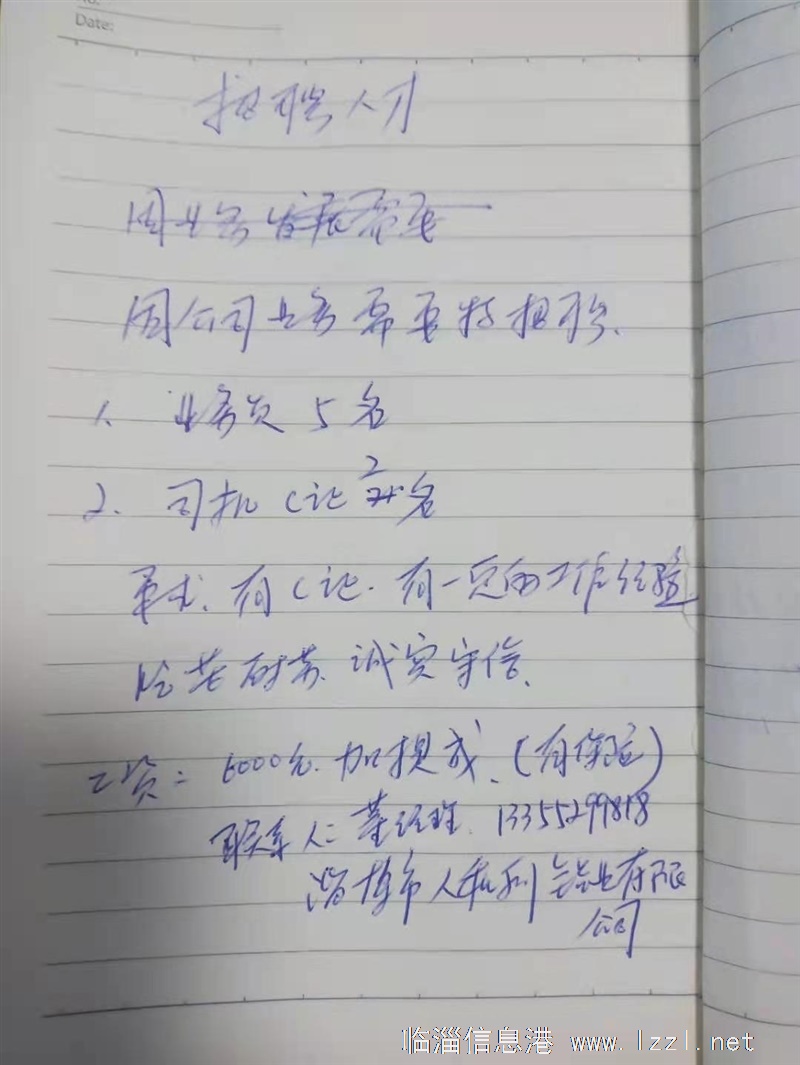 No:
Date:
招聘人才
因业务发展需要
因公司业务需要特招聘、
1、业务员5名
2、司机C证2名
要求、有C证.有一定的工作经验
吃苦耐劳、诚实守信、
工资: 6000元.加提成、(有保险)
联系人:董经理.13355299818
淄博市人和利 有限
公司
临淄信息港 www.lzzl.net